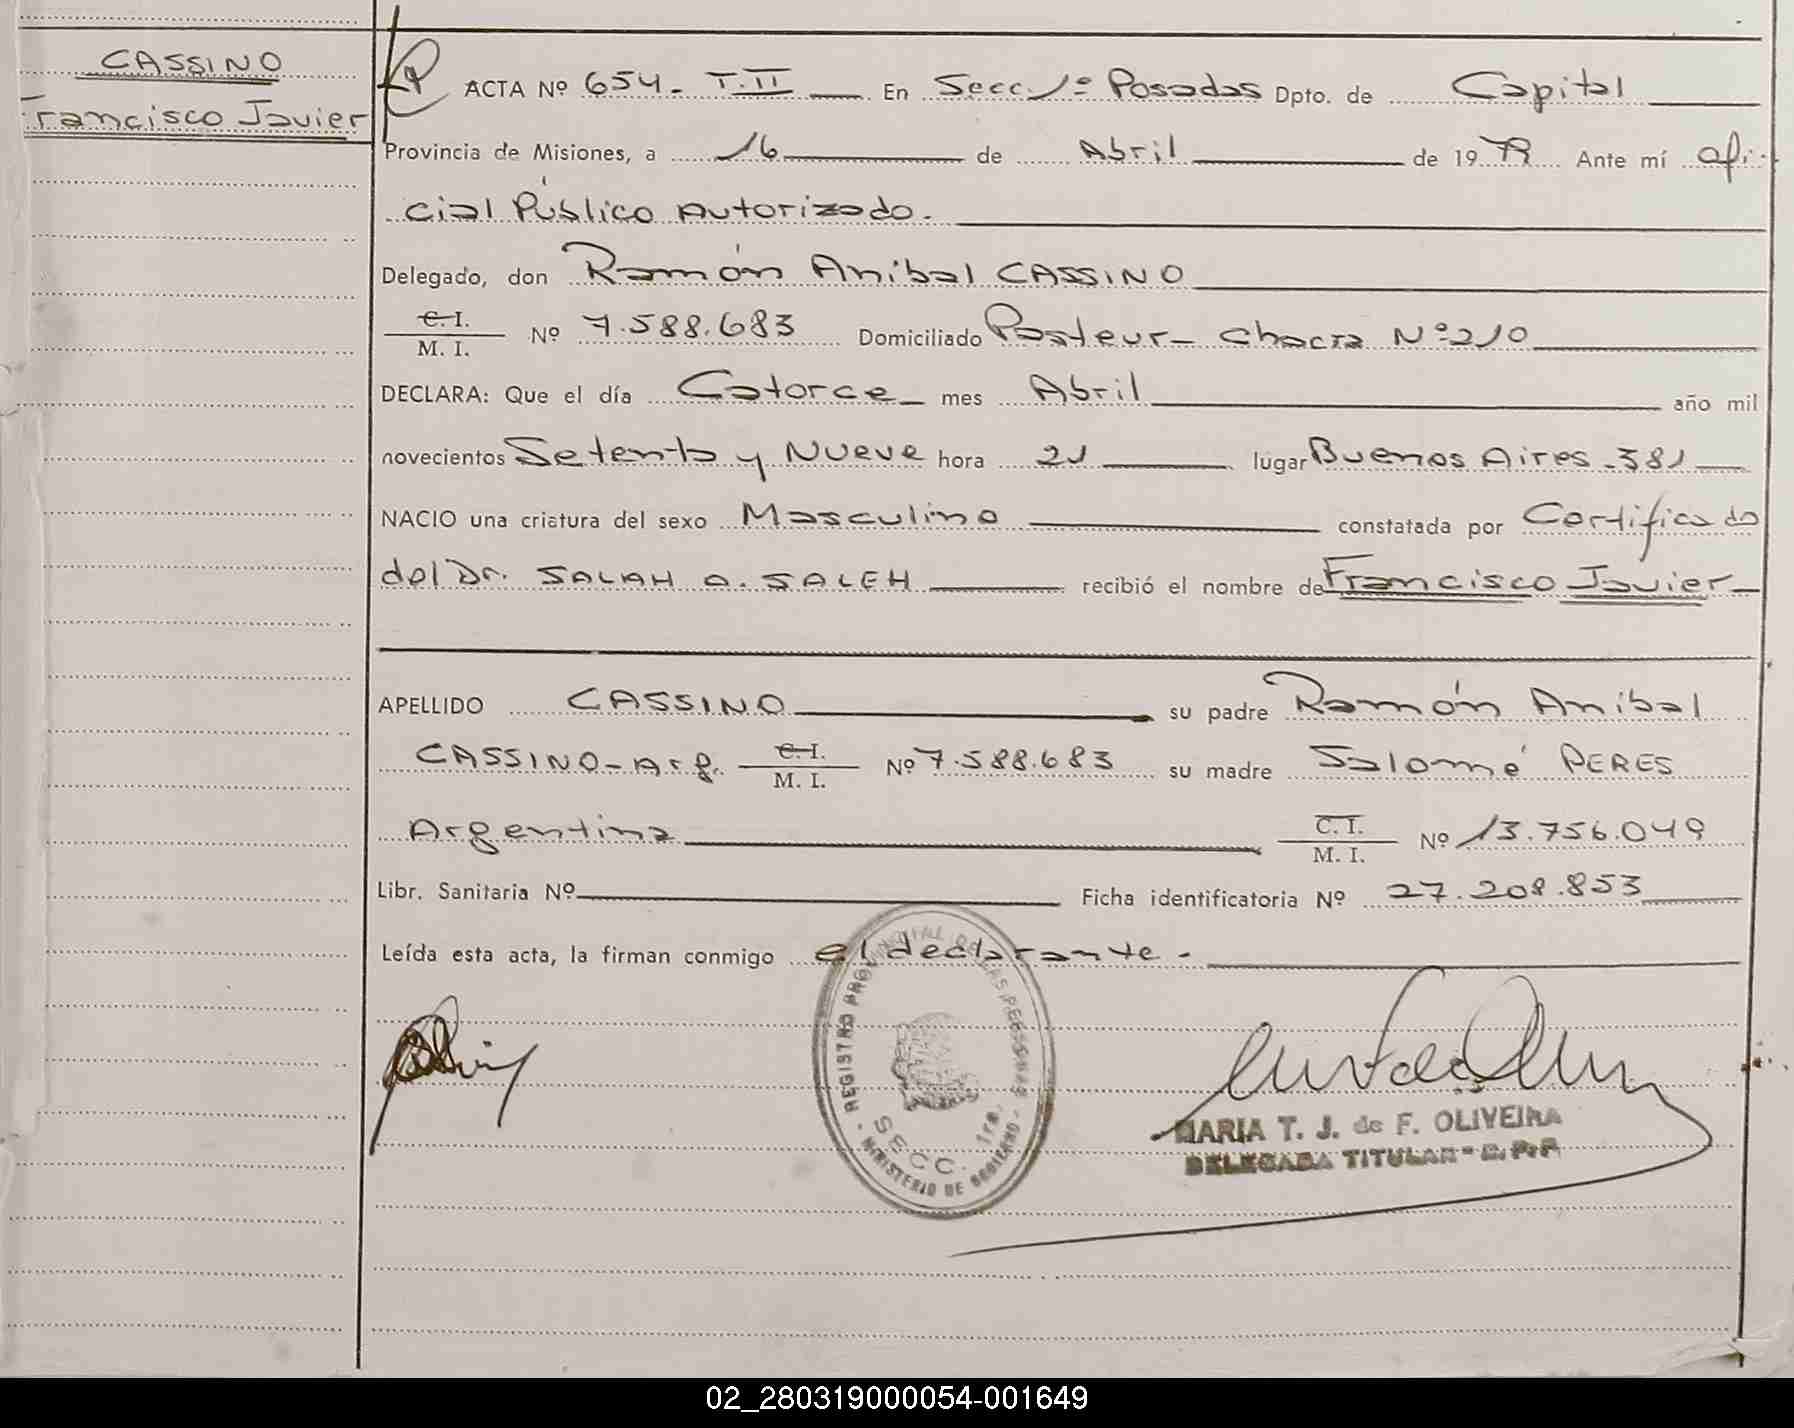 CASSINO
Francisco Javier
ACTA Nº 654. T.II En Secc. 1ª Posadas Dpto. de Capital
Provincia de Misiones, a 16 de Abril de 1979 Ante mí ofi-
cial Público Autorizado.
Delegado, don Ramón Anibal CASSINO
C. I.
M. I. Nº 7.588.683 Domiciliado Pasteur - Chacra Nº 210
DECLARA: Que el día Catorce mes Abril año mil
novecientos Setenta y Nueve hora 21 lugar Buenos Aires - 381
NACIO una criatura del sexo Masculino constatada por Certificado
del Dr. SALAH A. SALEH recibió el nombre de Francisco Javier
APELLIDO CASSINO su padre Ramón Anibal
CASSINO - Arg. C. I. M. I. Nº 7.588.683 su madre Salomé PERES
Argentina C. I. M. I. Nº 13.756.049
Libr. Sanitaria Nº Ficha identificatoria Nº 27.208.853
Leída esta acta, la firman conmigo el declarante.
REGISTRO PROVINCIAL DE LAS PERSONAS
SECC. 1ra.
MINISTERIO DE GOBIERNO
MARIA T. J. de F. OLIVEIRA
DELEGADA TITULAR - R. P. P.
02_280319000054-001649